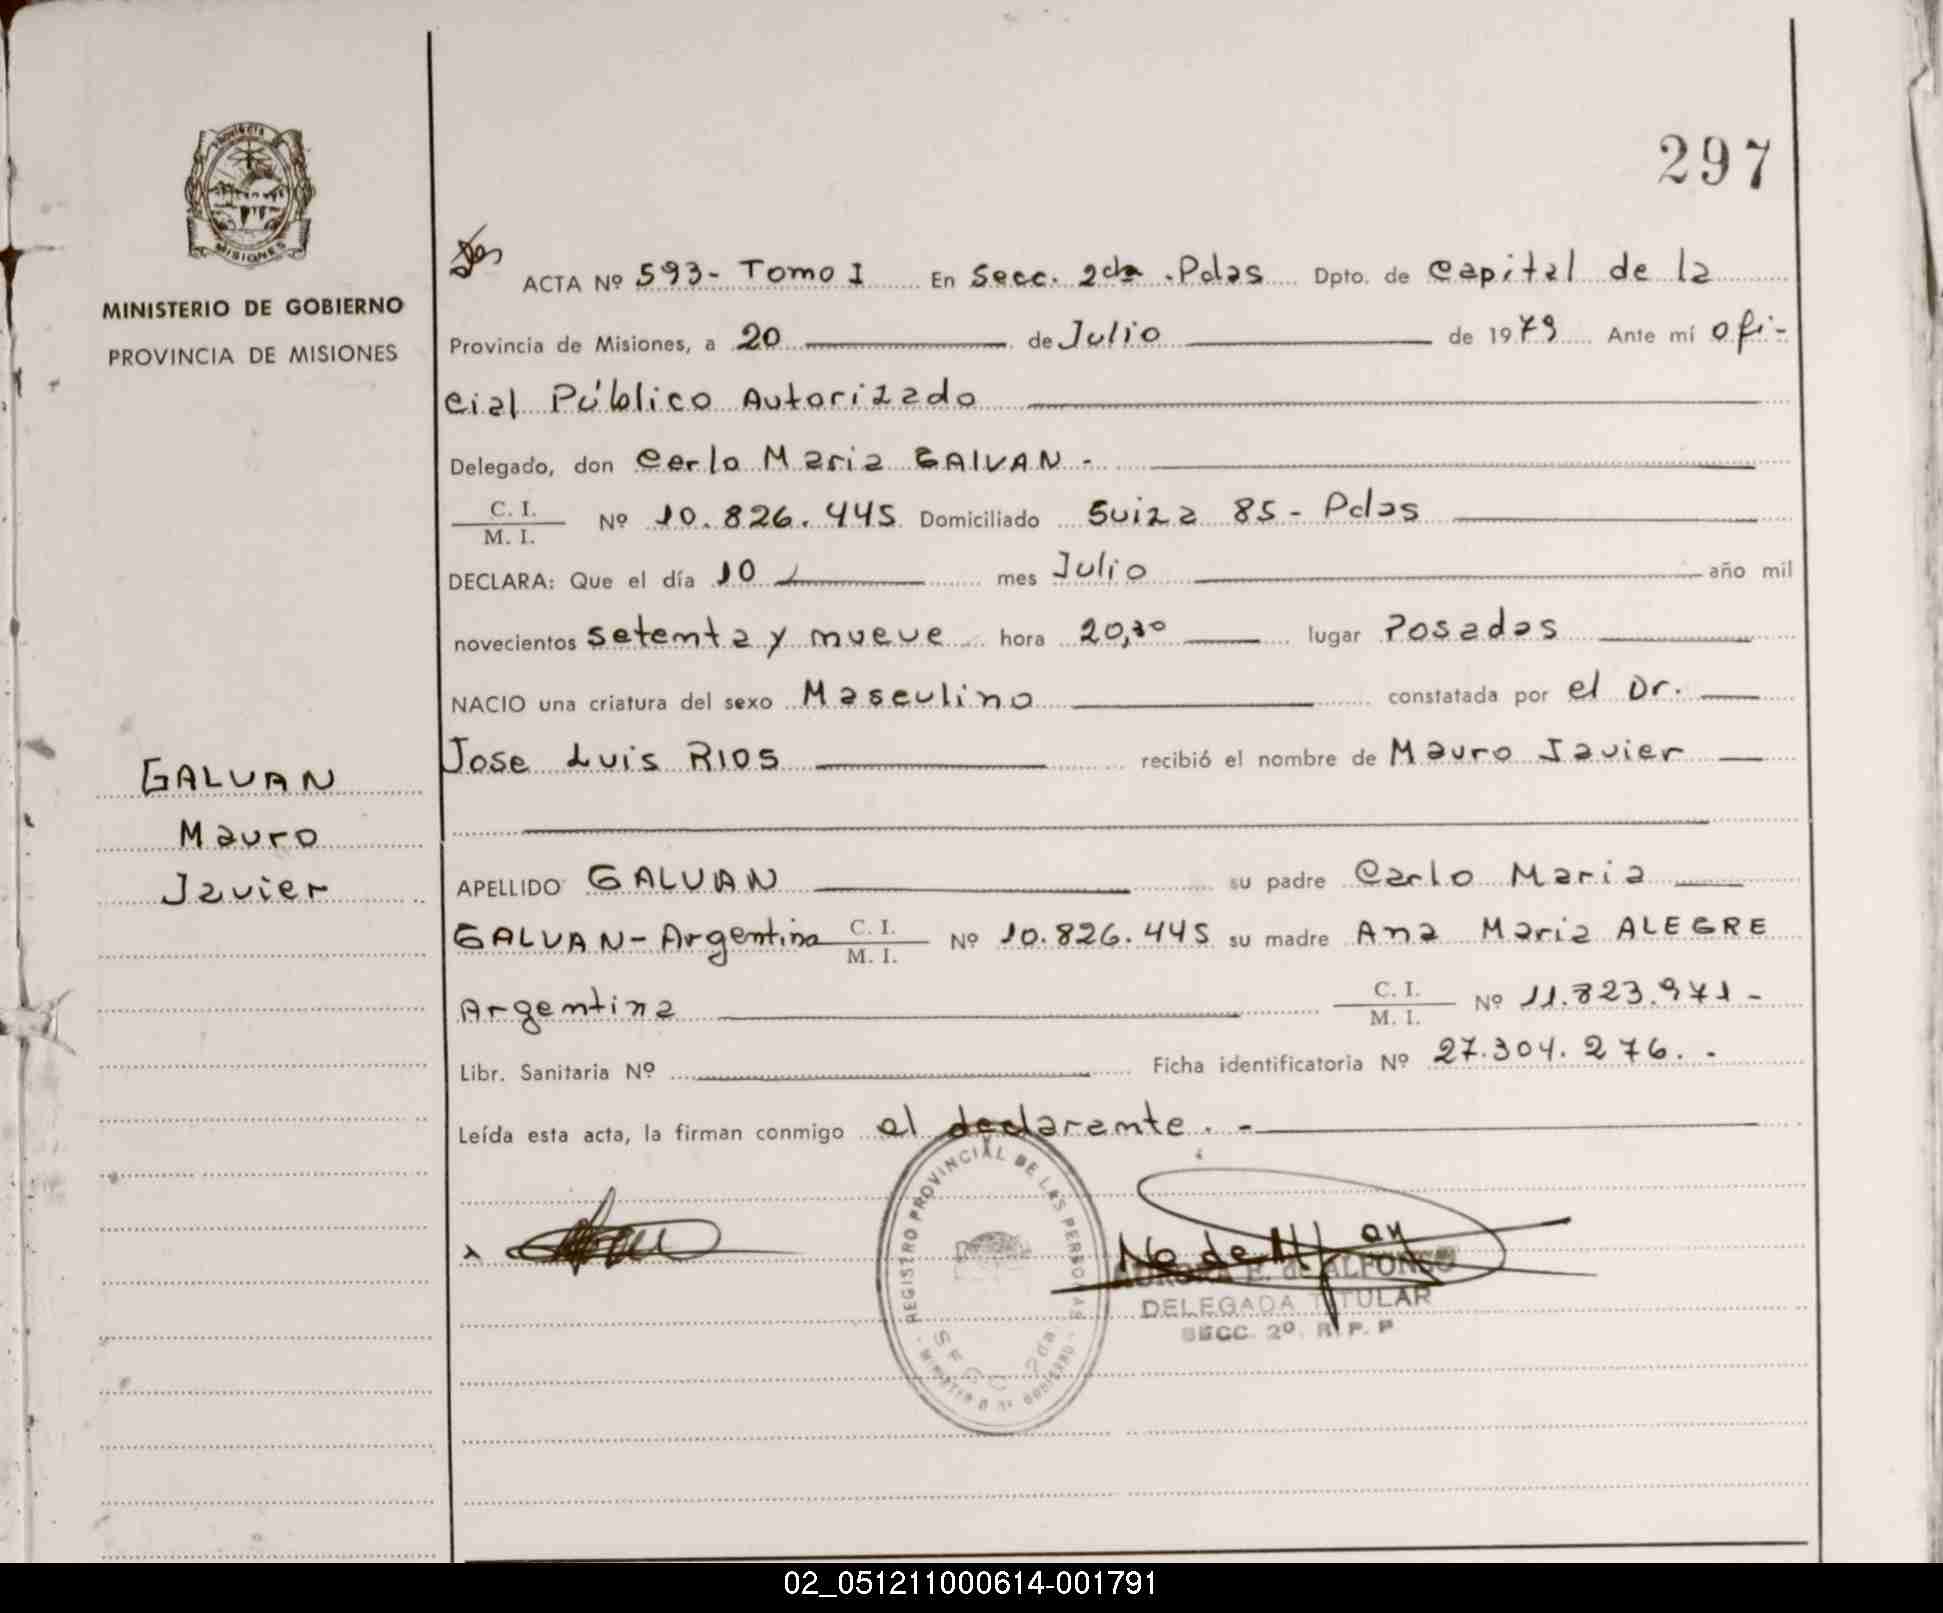 Provincia
MISIONES
MINISTERIO DE GOBIERNO
PROVINCIA DE MISIONES
GALVAN
Mauro
Javier
297
ACTA Nº 593- Tomo I En Secc. 2da .Pdas Dpto. de Capital de la
Provincia de Misiones, a 20 de Julio de 1979 Ante mí ofi-
cial Público Autorizado
Delegado, don Cerlo Maria GAlVAN -
C. I.
M. I.
Nº 10.826.445 Domiciliado Suiza 85 - Pdas
DECLARA: Que el día 10 mes Julio año mil
novecientos setenta y nueve hora 20,30 lugar Posadas
NACIO una criatura del sexo Masculino constatada por el Dr.
Jose Luis RIOS recibió el nombre de Mauro Javier
APELLIDO GALVAN su padre Carlo Maria
GALVAN- Argentina C. I. M. I. Nº 10.826.445 su madre Ana Maria ALEGRE
Argentina C. I. M. I. Nº 11.823.971-
Libr. Sanitaria Nº Ficha identificatoria Nº 27.304.276. -
Leída esta acta, la firman conmigo el declarante. -
REGISTRO PROVINCIAL DE LAS PERSONAS
SECC 2da
MINISTERIO DE GOBIERNO
AURORA E. de ALFONSO
DELEGADA TITULAR
SECC. 2º. R. P. P
02_051211000614-001791